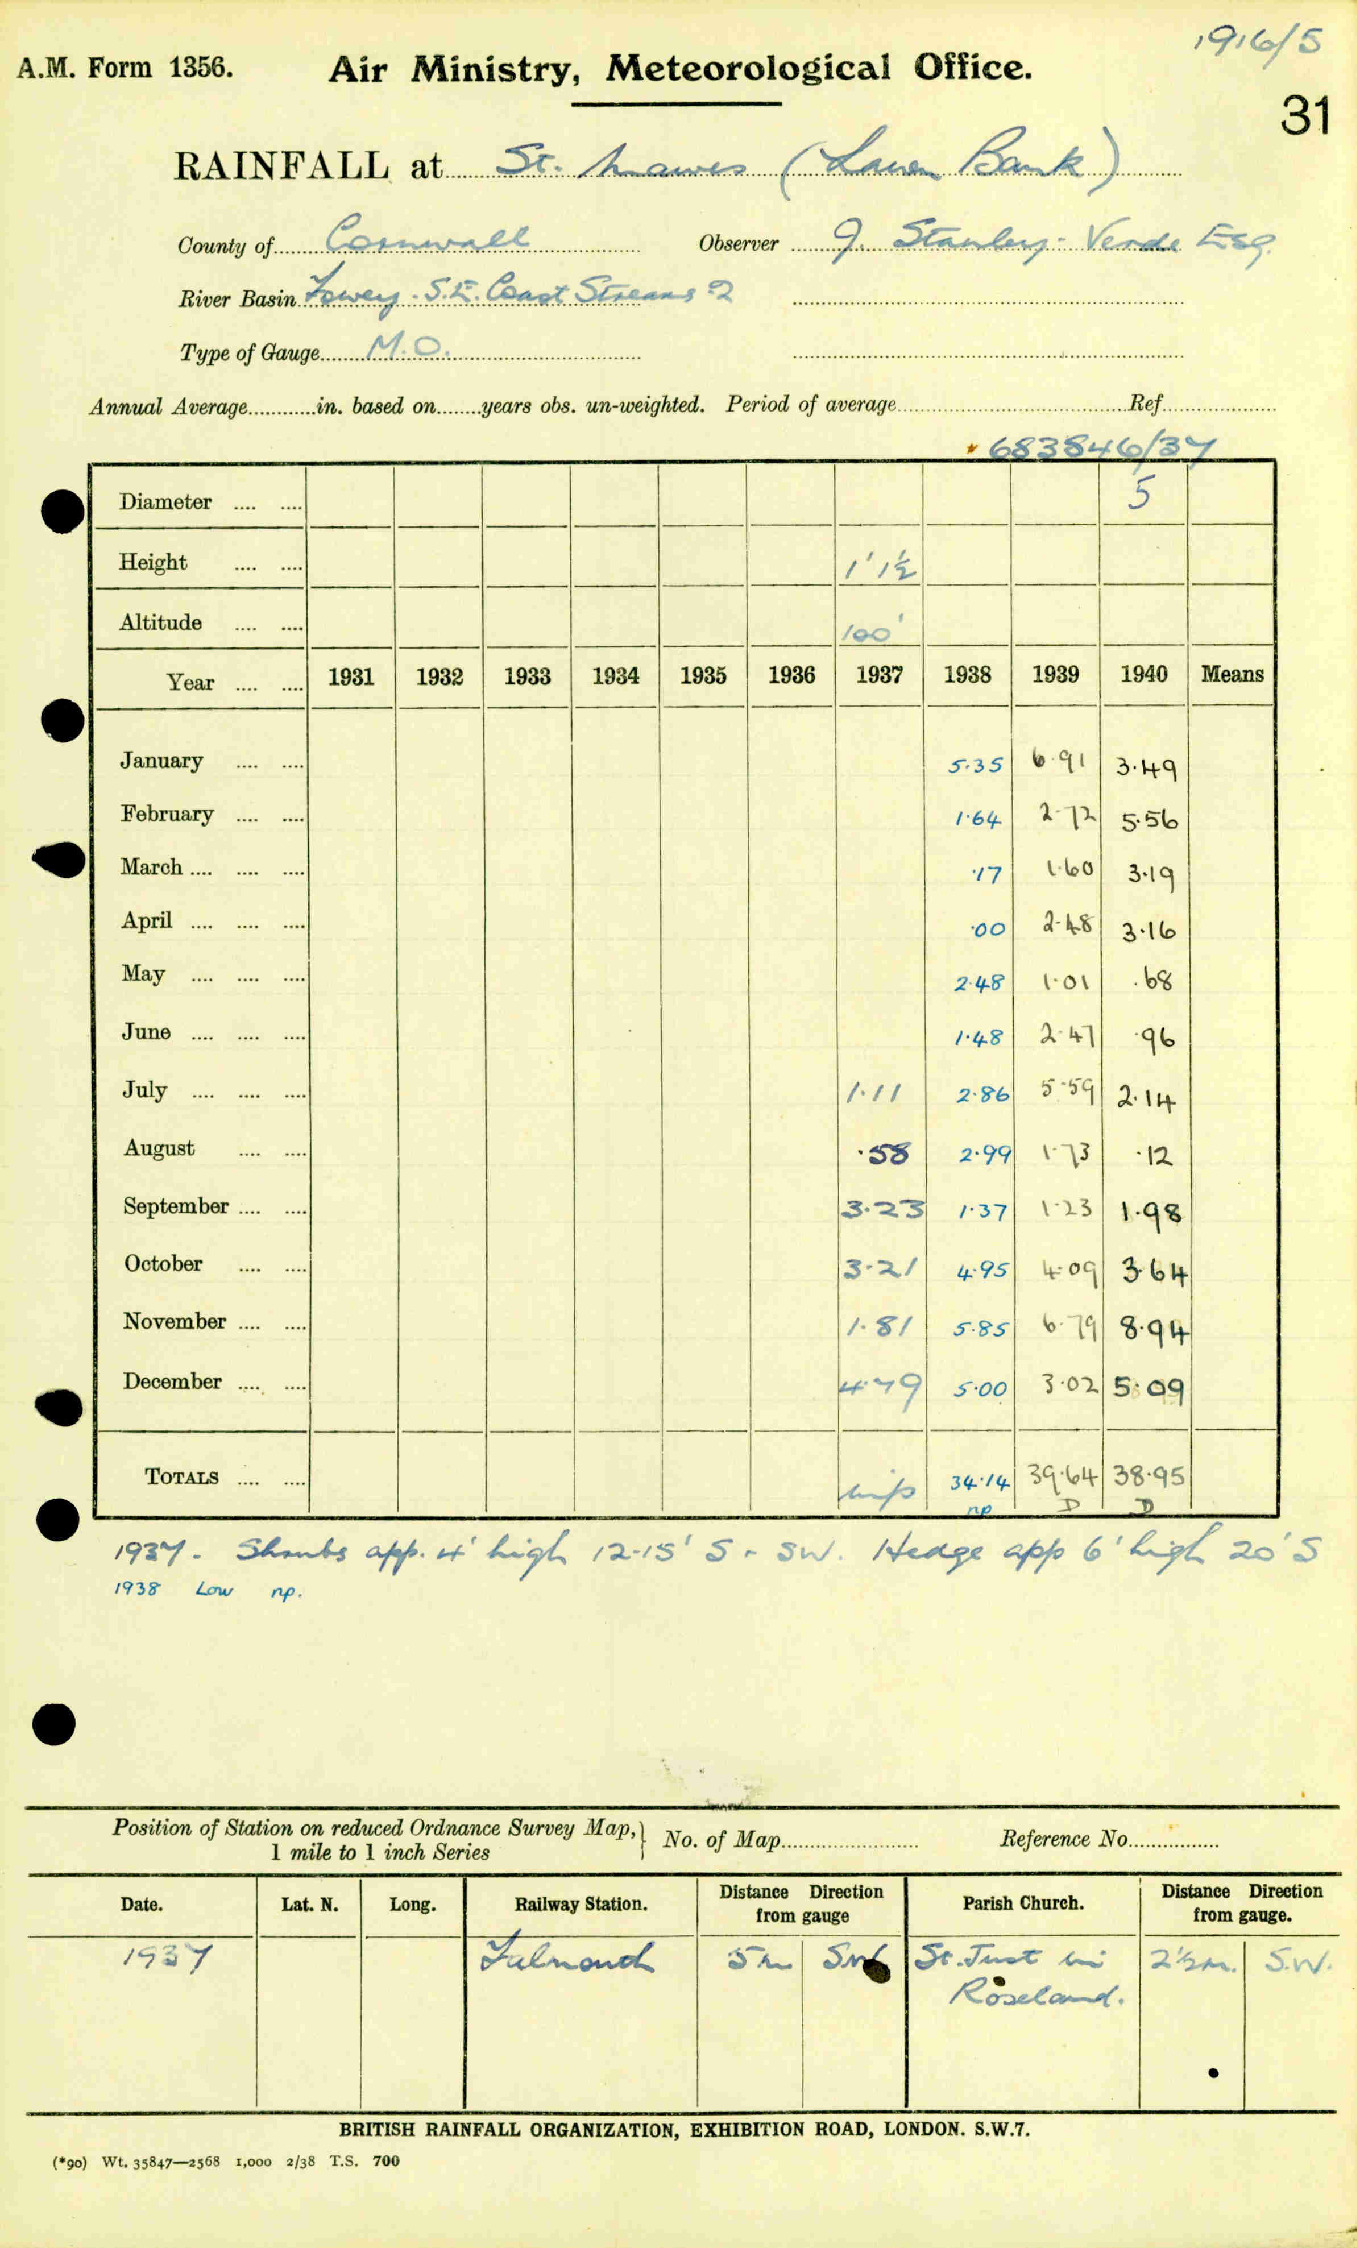 1916/5
A.M. Form 1356. Air Ministry, Meteorological Office.
31
RAINFALL at St. Mawes ( Bank)
County of Cornwall Observer J. Stanley-Verde Esq.
River Basin Fowey. S.E. Coast Streams 2
Type of Gauge M.O.
Annual Average in. based on years obs. un-weighted. Period of average Ref.
683846/37
Diameter 5
Height 1' 1½
Altitude 100'
Year 1931 1932 1933 1934 1935 1936 1937 1938 1939 1940 Means
January 5.35 6.91 3.49
February 1.64 2.72 5.56
March .17 1.60 3.19
April .00 2.48 3.16
May 2.48 1.01 .68
June 1.48 2.47 .96
July 1.11 2.86 5.59 2.14
August .58 2.99 1.73 .12
September 3.23 1.37 1.23 1.98
October 3.21 4.95 4.09 3.64
November 1.81 5.85 6.79 8.94
December 4.79 5.00 3.02 5.09
TOTALS 34.14 39.64 38.95
np D D
1937. Shrubs app. 4' high 12-15' S - SW. Hedge app 6' high 20' S
1938 Low np.
Position of Station on reduced Ordnance Survey Map, No. of Map Reference No.
1 mile to 1 inch Series
Date. Lat. N. Long. Railway Station. Distance Direction from gauge Parish Church. Distance Direction from gauge.
1937 Falmouth 5m SW St. Just in 2½m. S.W.
Roseland.
BRITISH RAINFALL ORGANIZATION, EXHIBITION ROAD, LONDON. S.W.7.
(*90) Wt. 35847—2568 1,000 2/38 T.S. 700